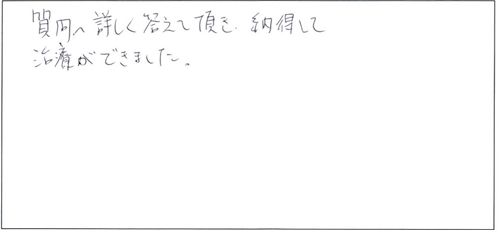 質問へ詳しく答えて頂き、納得して
治療ができました。